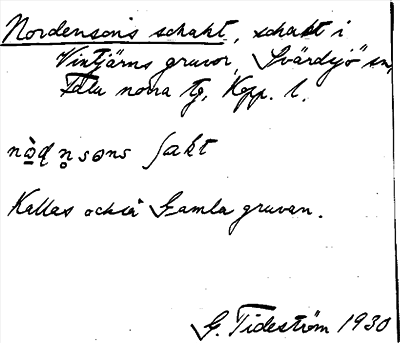 Nordensons schakt, schakt i
Vintjärns gruvor, Svärdsjö sn,
Falu norra tg, Kopp. l.
nò̱ɖn̥sɔns ʃakt
Kallas också Gamla gruvan.
G. Tideström 1930